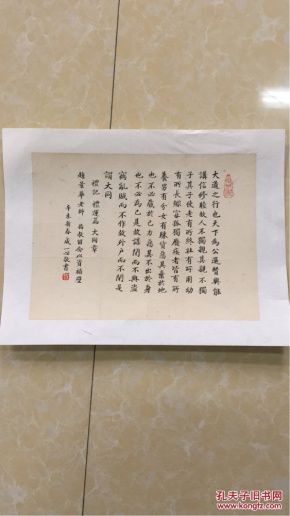 大道之行也天下為公選賢與能
講信修睦故人不獨親其親不獨
子其子使老有所終壯有所用幼
有所長鰥寡孤獨廢疾者皆有所
養男有分女有歸貨惡其棄於地
也不必藏於己力惡其不出於身
也不必為己是故謀閉而不興盜
竊亂賊而不作故外戶而不閉是
謂大同
禮記 禮運篇 大同章
趙景華老師
辛未新春
孔夫子旧书网